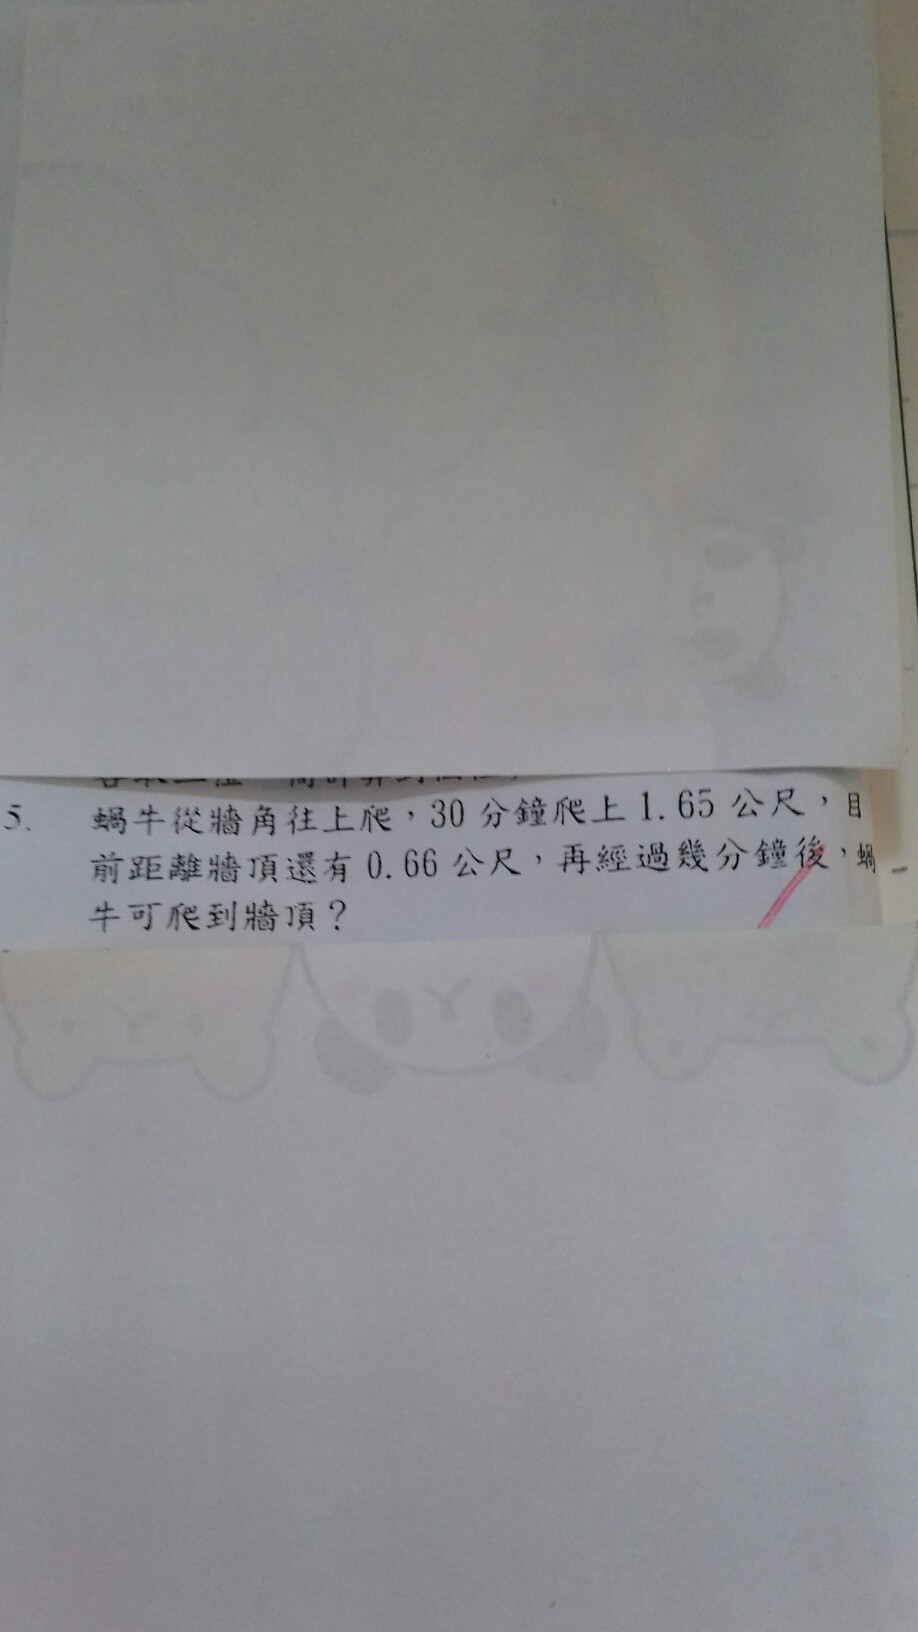 5. 蝸牛從牆角往上爬，30 分鐘爬上 1.65 公尺，目
前距離牆頂還有 0.66 公尺，再經過幾分鐘後，蝸
牛可爬到牆頂？